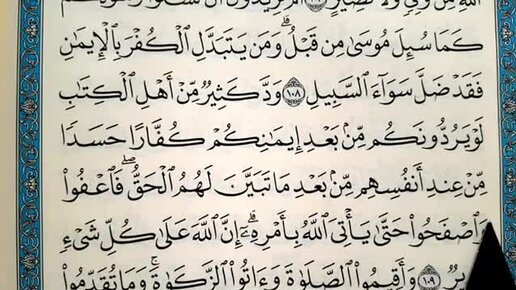 ٱللَّهِ مِن وَلِيٍّ وَلَا نَصِيرٍ ۝ أَمْ تُرِيدُونَ أَن تَسْـَٔلُوا۟ رَسُولَكُمْ
كَمَا سُئِلَ مُوسَىٰ مِن قَبْلُ ۗ وَمَن يَتَبَدَّلِ ٱلْكُفْرَ بِٱلْإِيمَٰنِ
فَقَدْ ضَلَّ سَوَآءَ ٱلسَّبِيلِ ۝١٠٨ وَدَّ كَثِيرٌ مِّنْ أَهْلِ ٱلْكِتَٰبِ
لَوْ يَرُدُّونَكُم مِّنۢ بَعْدِ إِيمَٰنِكُمْ كُفَّارًا حَسَدًا
مِّنْ عِندِ أَنفُسِهِم مِّنۢ بَعْدِ مَا تَبَيَّنَ لَهُمُ ٱلْحَقُّ ۖ فَٱعْفُوا۟
وَٱصْفَحُوا۟ حَتَّىٰ يَأْتِىَ ٱللَّهُ بِأَمْرِهِۦٓ ۗ إِنَّ ٱللَّهَ عَلَىٰ كُلِّ شَىْءٍ
يرٌ ۝١٠٩ وَأَقِيمُوا۟ ٱلصَّلَوٰةَ وَءَاتُوا۟ ٱلزَّكَوٰةَ ۚ وَمَا تُقَدِّمُوا۟